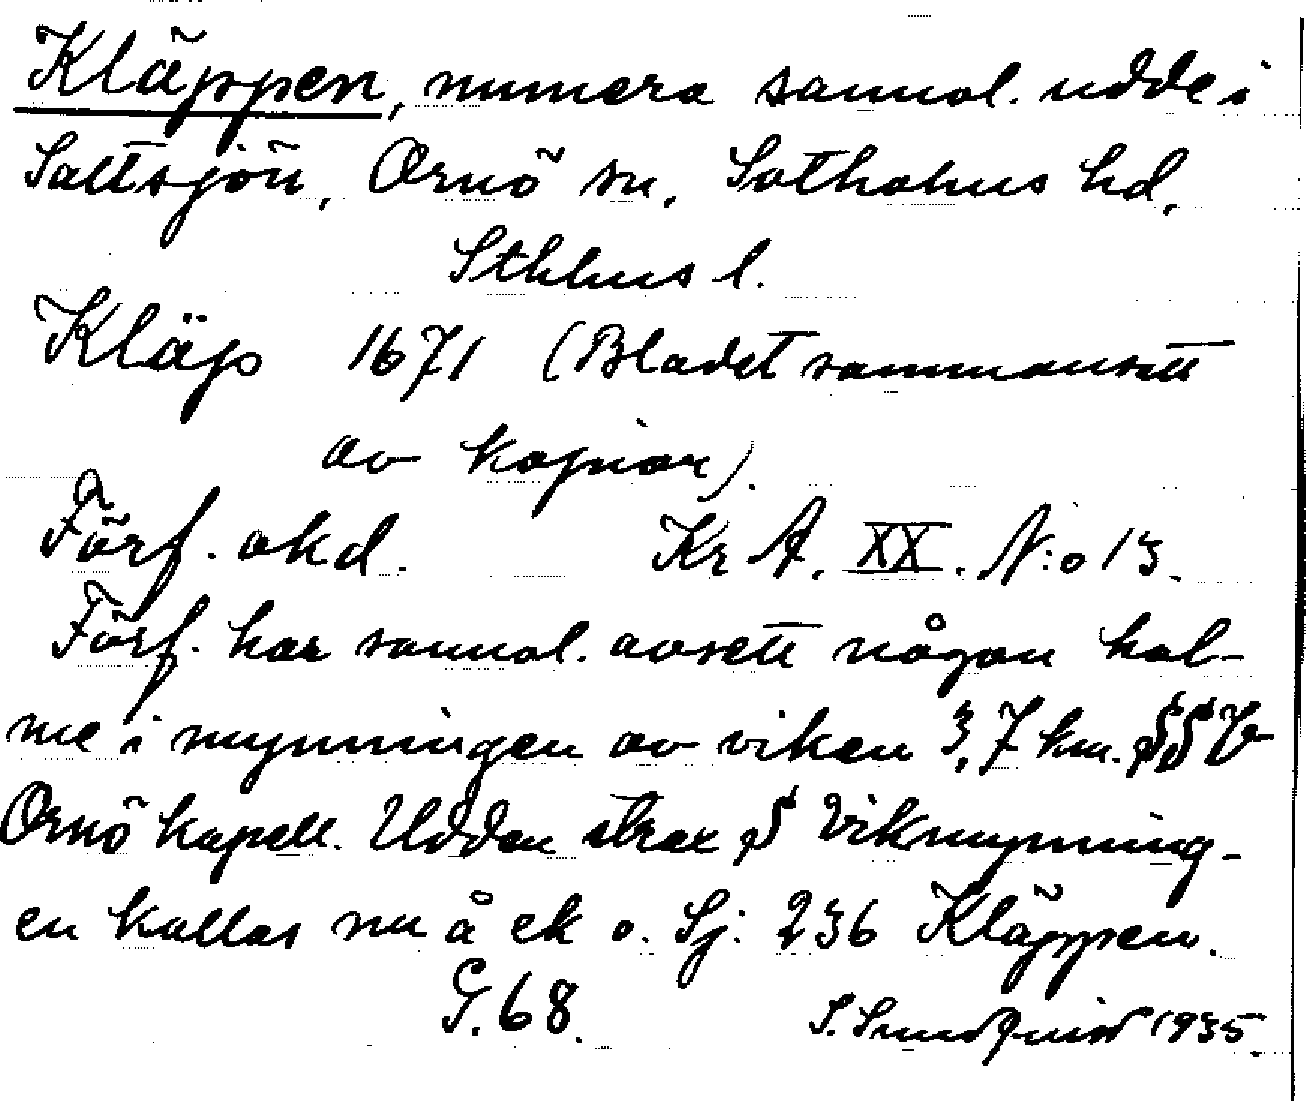 Kläppen, numera sannol. udde i
Saltsjön, Ornö sn, Sotholms hd,
Sthlms l.
Kläp 1671 (Bladet sammansatt
av kopior).
Förf. okd. Kr A. XX. N:o 13.
Förf. har sannol. avsett någon hol-
me i mynningen av viken 3,7 km. SSV
Ornö kapell. Udden strax S Vikmynning-
en kallas nu å ek o. Sj: 236 Kläppen.
G. 68. S. Sundquist 1935.